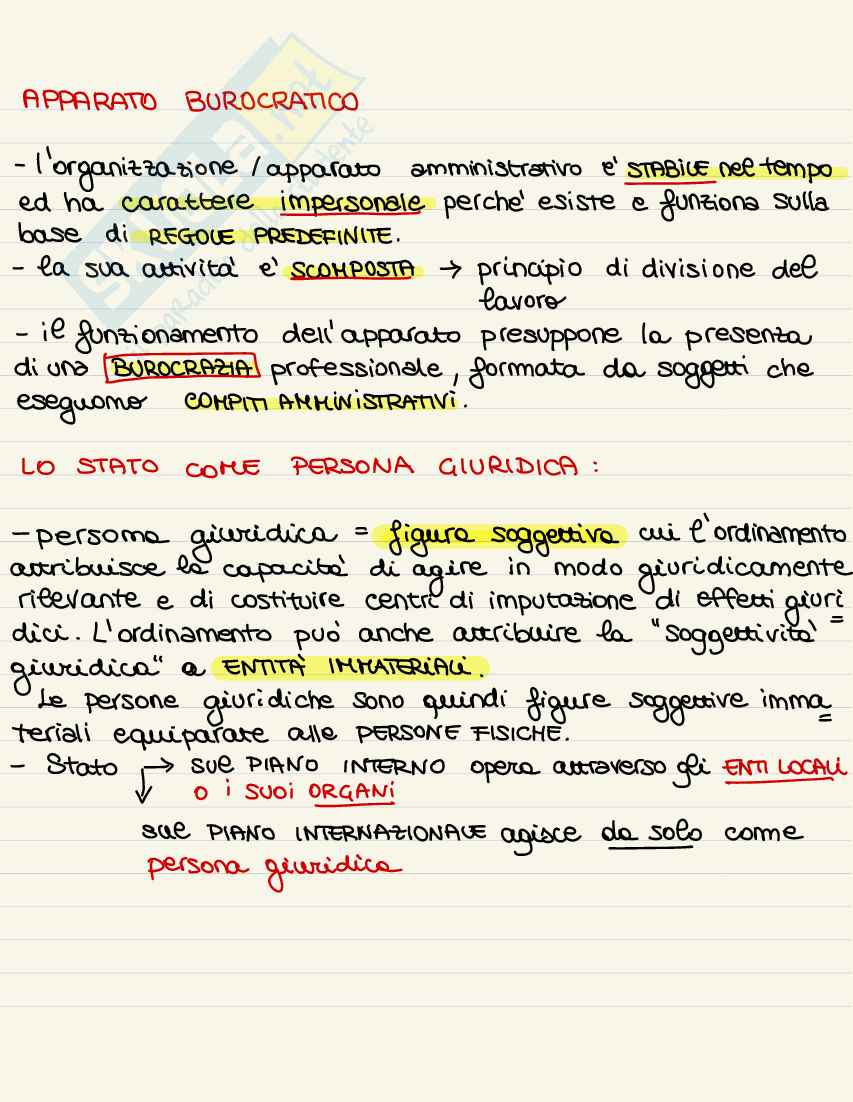 APPARATO BUROCRATICO
- l'organizzazione / apparato amministrativo e' STABILE nel tempo
ed ha carattere impersonale perche' esiste e funziona sulla
base di REGOLE PREDEFINITE.
- la sua attivita' e' SCOMPOSTA → principio di divisione del
lavoro
- il funzionamento dell'apparato presuppone la presenza
di una BUROCRAZIA professionale, formata da soggetti che
eseguono COMPITI AMMINISTRATIVI.
LO STATO COME PERSONA GIURIDICA :
- persona giuridica = figura soggettiva cui l'ordinamento
attribuisce la capacita' di agire in modo giuridicamente
rilevante e di costituire centri di imputazione di effetti giuri
dici. L'ordinamento puo' anche attribuire la "soggettivita' =
giuridica" a ENTITA' IMMATERIALI.
Le persone giuridiche sono quindi figure soggettive imma
teriali equiparate alle PERSONE FISICHE. =
- Stato → sul PIANO INTERNO opera attraverso gli ENTI LOCALI
↓ o i suoi ORGANI
sul PIANO INTERNAZIONALE agisce da solo come
persona giuridica